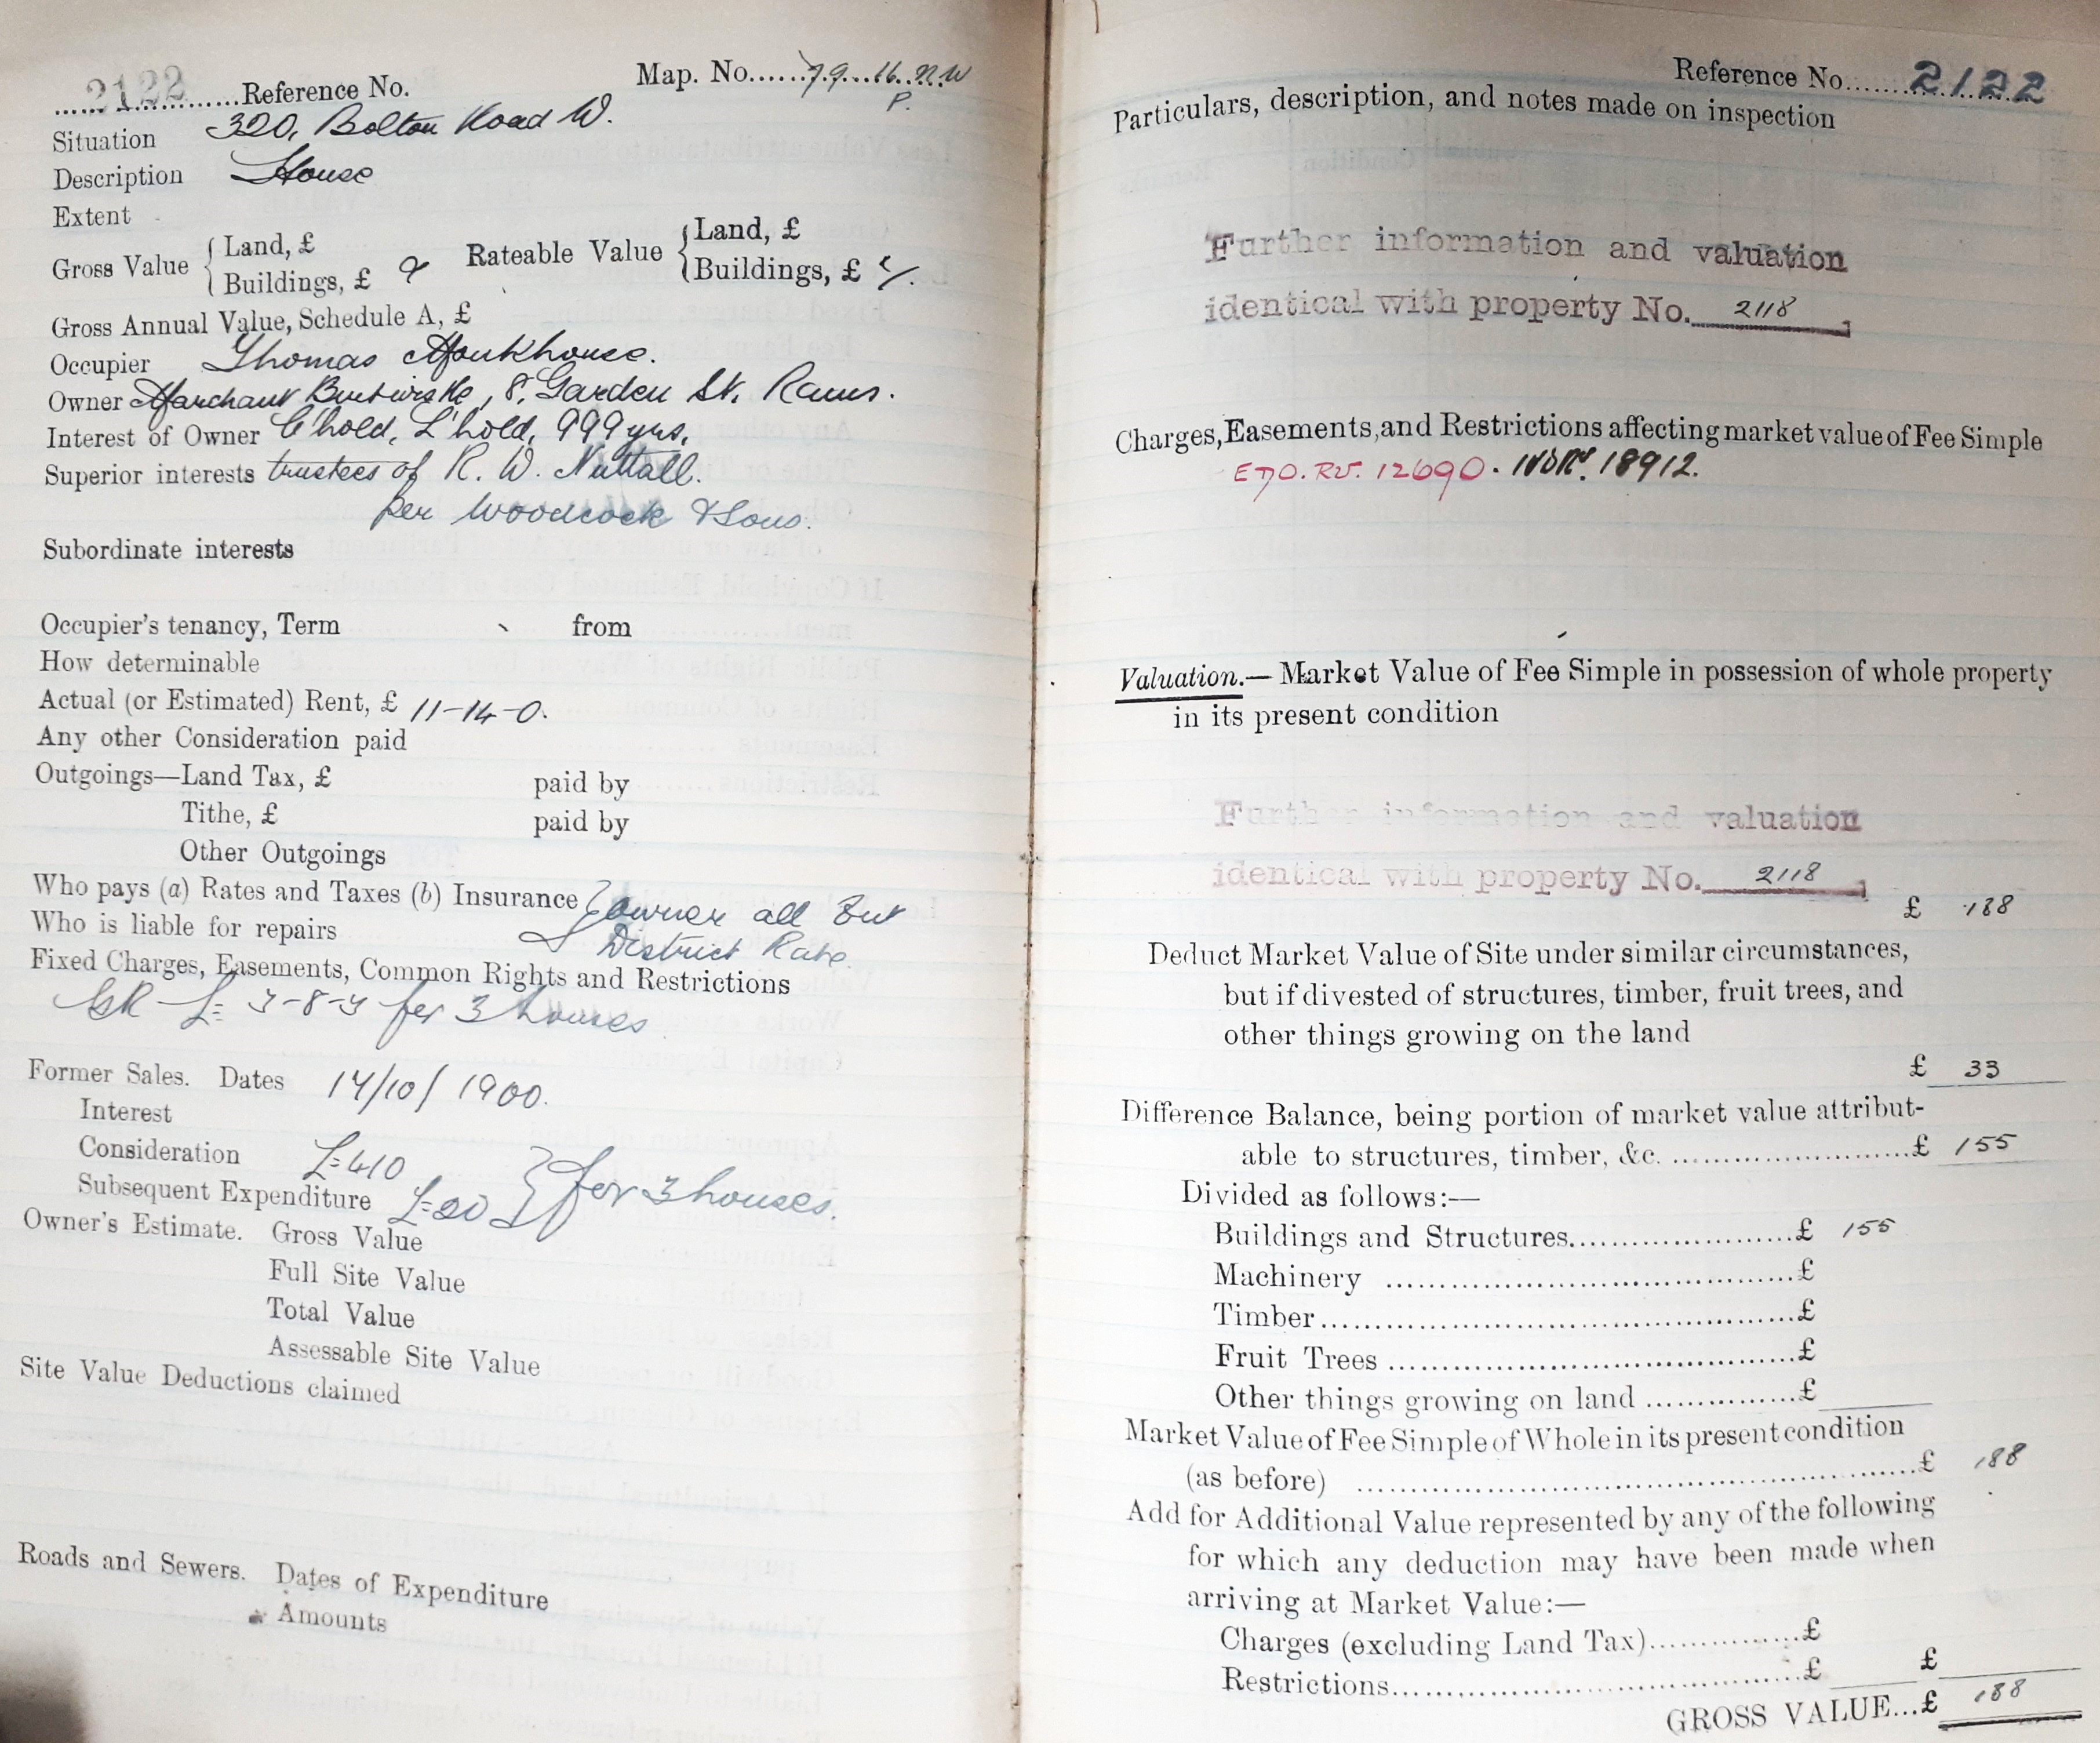 2122 Reference No. Map. No. 79.16.NW
P.
Situation 320, Bolton Road W.
Description House
Extent
Gross Value { Land, £ Rateable Value { Land, £
Buildings, £ 9 Buildings, £
Gross Annual Value, Schedule A, £
Occupier Thomas Monkhouse.
Owner Marchant Butwistle, 8, Garden St. Rams.
Interest of Owner C'hold, L'hold, 999 yrs.
Superior interests trustees of R. W. Nuttall.
per Woodcock & Sons.
Subordinate interests
Occupier's tenancy, Term from
How determinable
Actual (or Estimated) Rent, £ 11-14-0.
Any other Consideration paid
Outgoings—Land Tax, £ paid by
Tithe, £ paid by
Other Outgoings
Who pays (a) Rates and Taxes (b) Insurance } owner all but
Who is liable for repairs District Rate.
Fixed Charges, Easements, Common Rights and Restrictions
GR £ 3-8-3 for 3 houses
Former Sales. Dates 14/10/1900.
Interest
Consideration £410 } for 3 houses.
Subsequent Expenditure £20
Owner's Estimate. Gross Value
Full Site Value
Total Value
Assessable Site Value
Site Value Deductions claimed
Roads and Sewers. Dates of Expenditure
Amounts
Reference No. 2122
Particulars, description, and notes made on inspection
Further information and valuation
identical with property No. 2118
Charges, Easements, and Restrictions affecting market value of Fee Simple
12690. 18912.
Valuation.—Market Value of Fee Simple in possession of whole property
in its present condition
Further information and valuation
identical with property No. 2118
£ 188
Deduct Market Value of Site under similar circumstances,
but if divested of structures, timber, fruit trees, and
other things growing on the land
£ 33
Difference Balance, being portion of market value attribut-
able to structures, timber, &c. £ 155
Divided as follows:—
Buildings and Structures £ 155
Machinery £
Timber £
Fruit Trees £
Other things growing on land £
Market Value of Fee Simple of Whole in its present condition
(as before) £ 188
Add for Additional Value represented by any of the following
for which any deduction may have been made when
arriving at Market Value:—
Charges (excluding Land Tax) £
Restrictions £ £
GROSS VALUE...£ 188